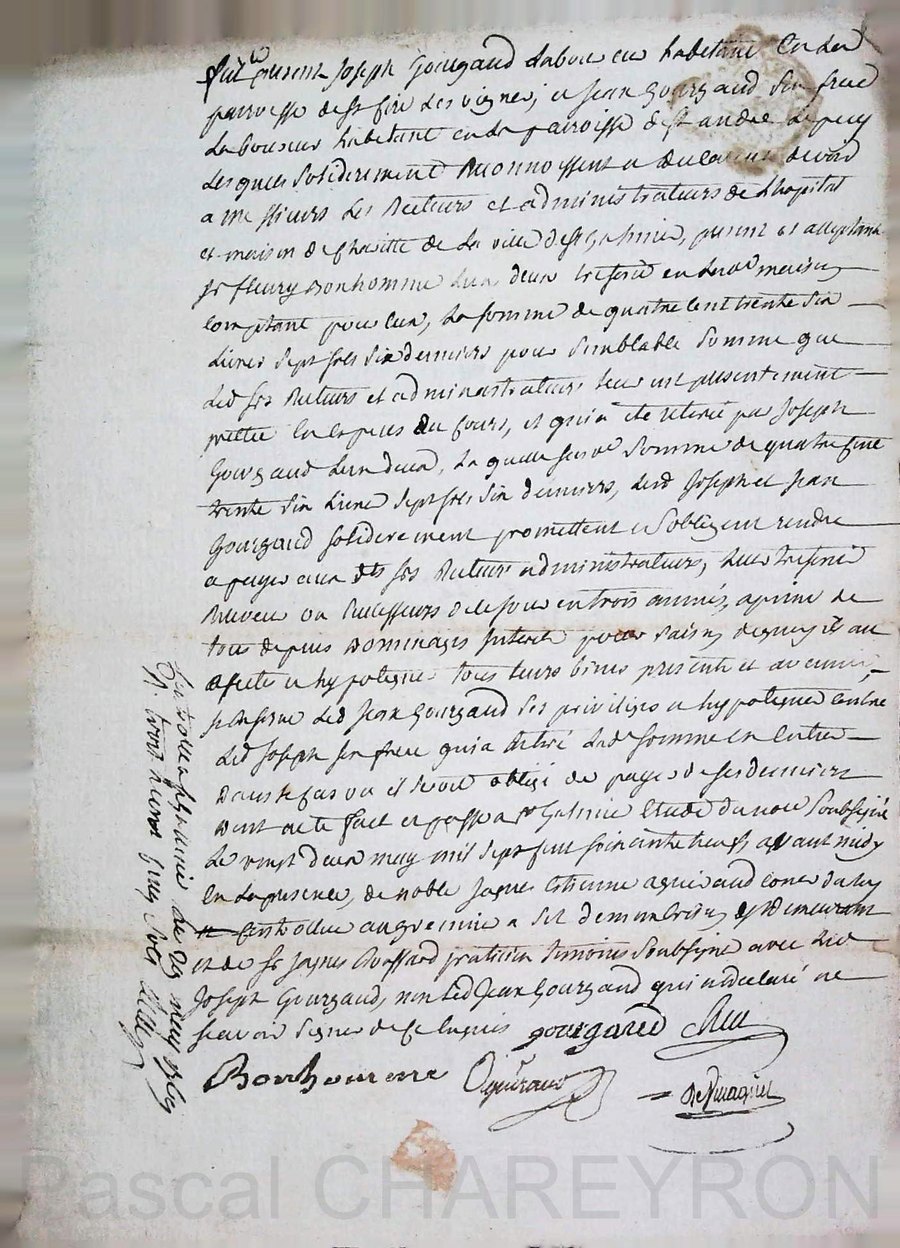 fut present Joseph Gourgaud laboureur habitant en la
parroisse de st Cire les vignes, et Jean Gourgaud son frere
laboureur habitant en la parroisse de st andré le puy
lesquels soliderement reconnoissent et devoir
a messieurs les recteurs et administrateurs de L'hopital
et maison de charitte de la ville de st Galmier, present et acceptant
sr fleury Bonhomme l'un deux en lad maison
comptant pour eux, la somme de quatre cent trente six
livres sept sols six deniers pour semblable somme que
led srs recteurs et administrateurs leur ont presentement
prettee en especes du cours, et qui a ete retiree par Joseph
Gourgaud l'un deux, la quelle somme de quatre cent
trente six livre sept sols six deniers, led Joseph et Jean
Gourgaud soliderement promettent et s'obligent rendre
et payer aux dts srs recteurs administrateurs, leur
receveur ou successeurs de ce jour en trois années, a peine de
tous depens dommages interets pour raison de quoy ils ont
afecté et hypotequé tous leurs biens present et avenir,
se reserve led Jean Gourgaud ses privileges et hypoteques contre
led Joseph son frere qui a retiré lad somme en entier
dans le cas ou il seroit obligé de payer de ses deniers
dont acte fait et passé a st Galmier etude du nore soubsigné
le vingt deux may mil sept cent soixante neuf avant midy
en la presence, de noble Jaques Etienne aguiraud coner du roy
controlleur au grenier a sel de monbrison y demeurant
et de sr Jaques praticien temoins soubsignés avec led
Joseph Gourgaud, non led Jean Gourgaud qui a declaré ne
scavoir signer de ce enquis gourgaud
Bonhomme Aguiraud
Controllé a st galmie le 29 may 1769